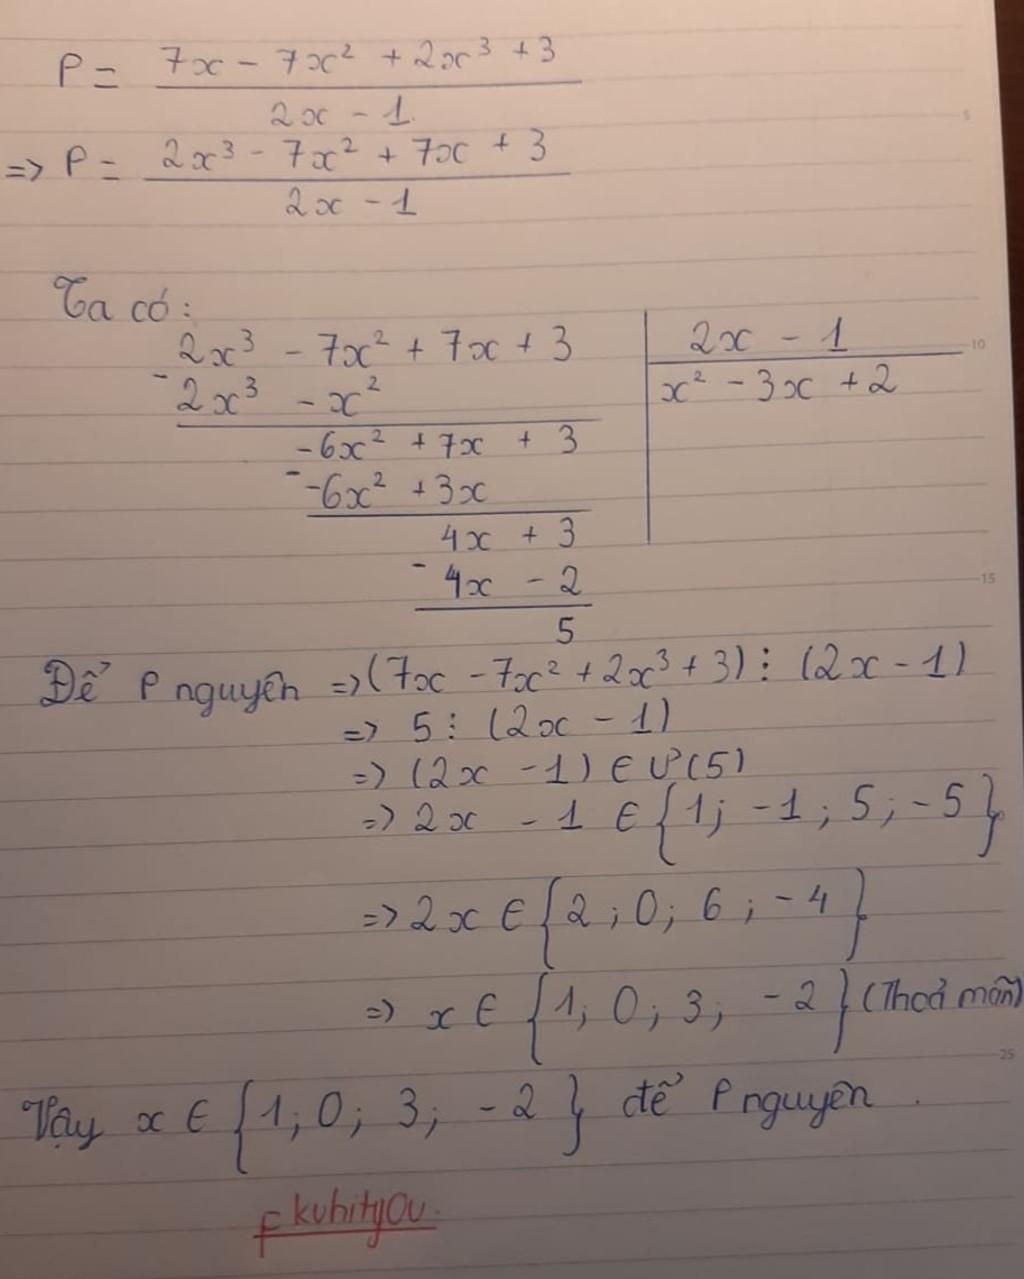 P = (7x - 7x² + 2x³ + 3) / (2x - 1)
=> P = (2x³ - 7x² + 7x + 3) / (2x - 1)
Ta có:
2x³ - 7x² + 7x + 3 | 2x - 1
- 2x³ - x² | x² - 3x + 2
-6x² + 7x + 3
- -6x² + 3x
4x + 3
- 4x - 2
5
Để P nguyên => (7x - 7x² + 2x³ + 3) ⋮ (2x - 1)
=> 5 ⋮ (2x - 1)
=> (2x - 1) ∈ Ư(5)
=> 2x - 1 ∈ {1; -1; 5; -5}
=> 2x ∈ {2; 0; 6; -4}
=> x ∈ {1; 0; 3; -2} (Thoả mãn)
Vậy x ∈ {1; 0; 3; -2} để P nguyên.